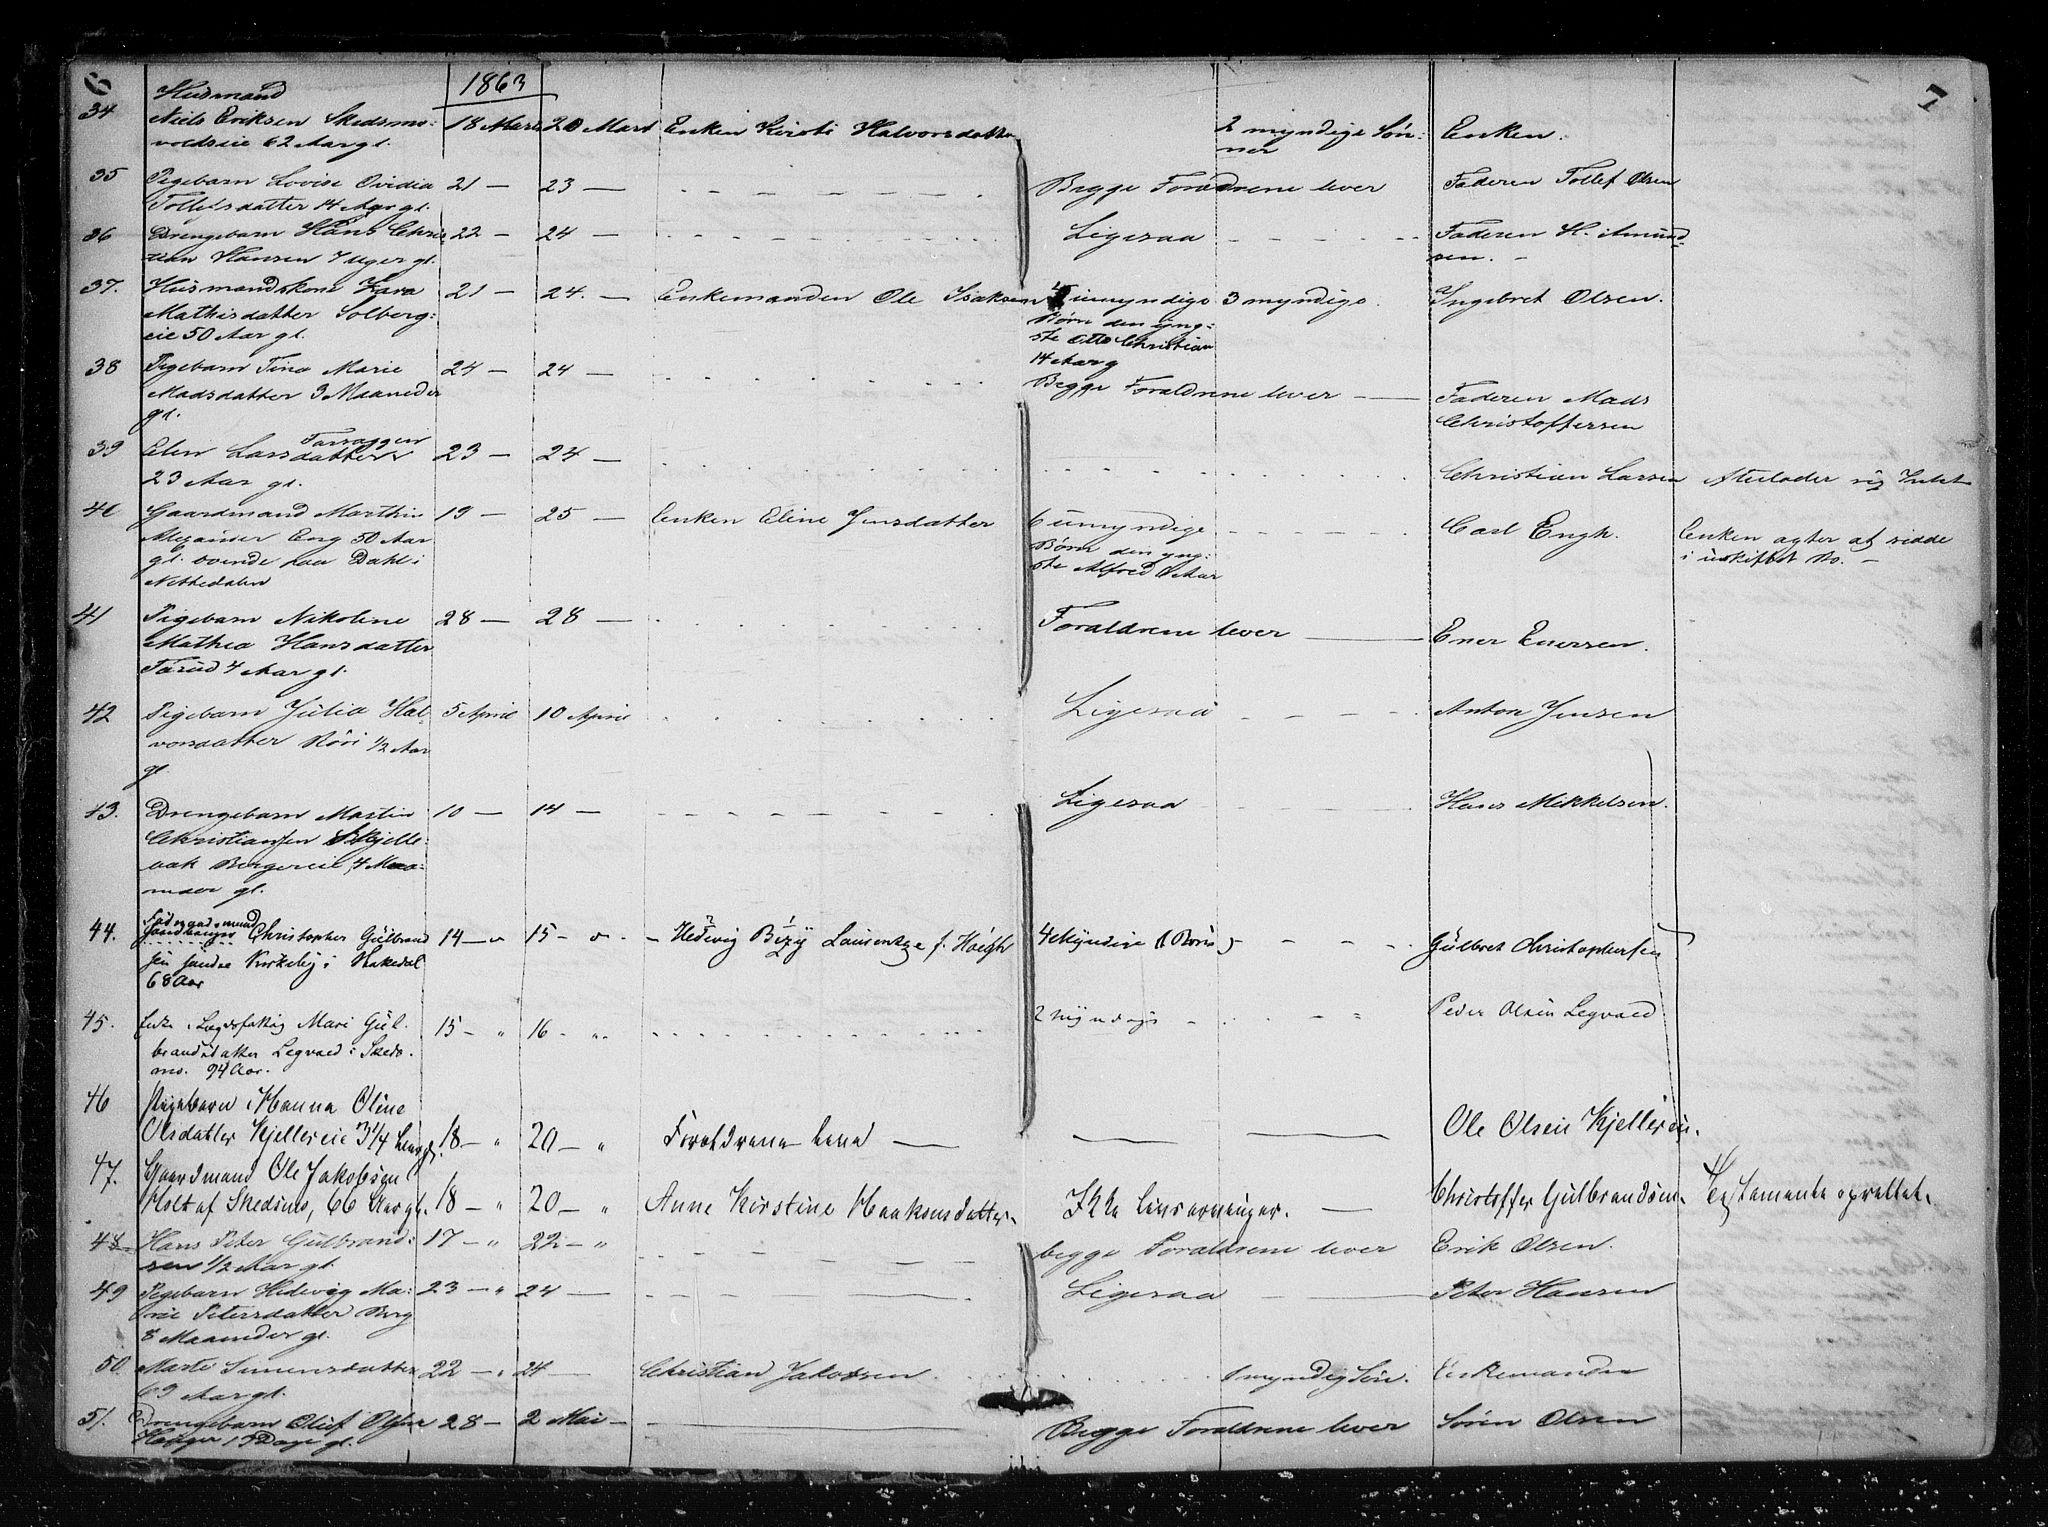 6
7
1863
34 Husmand
Niels Eriksen Skedsmo: 18 Mars 20 Mars Enken Kirsti Halvorsdatter 2 myndige Søn: Enken.
voldseie 62 Aar gl. ner
35 Pigebarn Lovise Ovidia 21 — 23 — Begge Forældrene lever Faderen Tollef Olsen
Tollefsdatter 14 Aar gl.
36 Drengebarn Hans Chris 22 — 24 — Ligesaa Faderen H. Amund
tian Hansen 7 uger gl. sen. —
37. Husmandskone Kara 21 — 24. — Enkemanden Ole Isaksen umyndige 3 myndige. Ingebret Olsen.
Mathisdatter Solberg: Børn den yng:
eie 50 Aar gl. ste Otto Christian
14 Aar g
38 Pigebarn Tina Marie 24 — 24 — Begge Forældrene lever — Faderen Mads
Madsdatter 3 Maaneder Christoffersen
gl.
39 Elen Larsdatter 23 — 24 — Christian Larsen
23 Aar gl. Intet
40 Gaardmand Marthin 19 — 25 — Enken Eline Jensdatter 6 umyndige Carl Engh. Enken agter at sidde
Alexander Eng 50 Aar Børn den yng: i uskiftet Bo. —
gl. boende paa Dahl i ste Alfred 1 Aar
Nittedalen
41 Pigebarn Nikoline 28 — 28 — Forældrene lever — Ener Enersen.
Mathea Hansdatter
Tarud 4 Aar gl.
42 Pigebarn Julia Hal 5 April 10 April Ligesaa Anton Jensen
vorsdatter Röri 1/2 Aar
gl
43. Drengebarn Martin 10 — 14 — Ligesaa Hans Mikkelsen.
Christiansen Skjelle:
bak Bergereie, 4 Maa:
neder gl.
44. Christopher Gülbrand 14 — 15 — Hedevig Laurentze f. Høegh 4 Myndige Børn Gülbret Christophersen
sen søndre Kirkeby i Hakedal
68 Aar
45. Enke, Lægdsfattig Mari Gül. 15 — " 16 — " 2 Myndige Peder Olsen Legvold
brandsdatter Legvold i Skeds.
mo. 94 Aar.
46 Pigebarn Hanna Oline
Olsdatter Kjellereie 3 1/4 18 — " 20 — " Forældrene leve — Ole Olsen Kjellereie.
47. Gaardmand Ole Jakobsen
Holt af Skedsmo, 66 Aar gl. 18 — " 20 — " Anne Kirstine Haakensdatter. Ikke Livsarvinger. — Christoffer Gülbrandsen. Testamente oprettet.
48 Hans Peter Gülbrand: 17 — " 22 — " begge Forældrene lever Erik Olsen.
sen 1/2 Aar gl.
49 Pigebarn Hedevig Ma: 23 — " 24 — Ligesaa Peter Hansen
rie Petersdatter Berg
8 Maaneder gl.
50. Marte Simensdatter 22 — " 24 — Christian Jakobsen. 1 myndig Søn. Enkemanden
69 Aar gl.
51. Drengebarn Oluf 28 — 2 Mai — Begge Forældrene lever Søren Olsen
Dage gl.